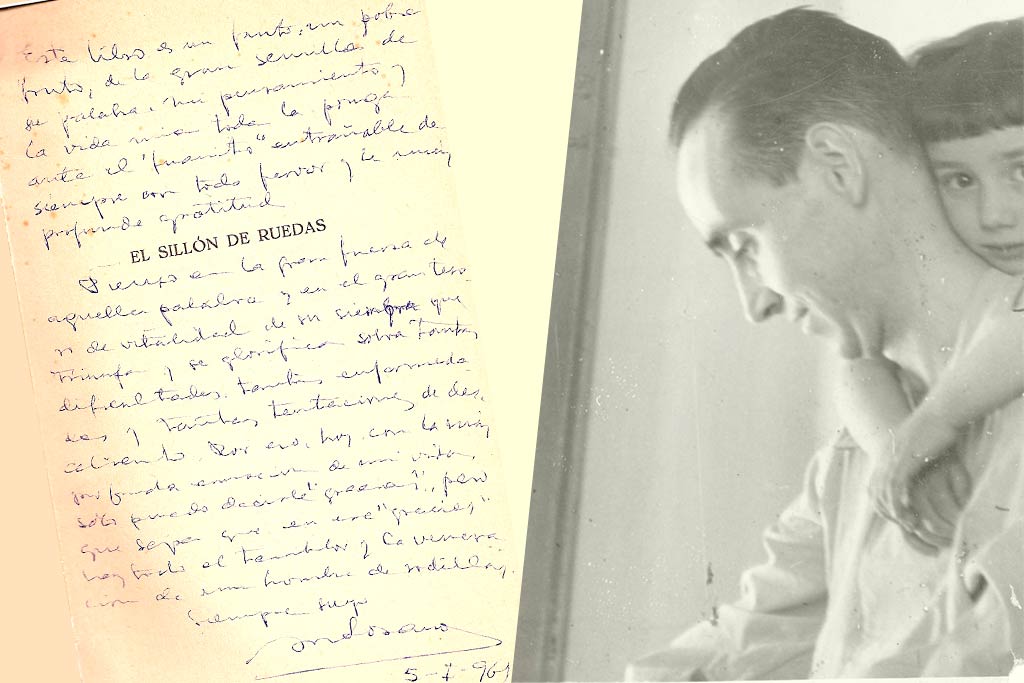 Este libro es un fruto, un pobre
fruto, de la gran semilla de
su palabra. Mi pensamiento y
la vida mia toda la pongo
ante el entrañable de
siempre con todo fervor y la más
profunda gratitud
EL SILLÓN DE RUEDAS
Pienso en la gran fuerza de
aquella palabra y en el gran teso
ro de vitalidad de su siempre que
triunfa y se glorifica sobre tantas
dificultades, tantas enfermeda
des y tantas tentaciones de des
caliento. Por eso, hoy, con la más
profunda emoción de mi vida,
sólo puedo decirle "gracias", pero
que sepa que en ese "gracias"
hay todo el temblor y la venera
ción de un hombre de rodillas.
Siempre suyo
Lozano
5-7-961